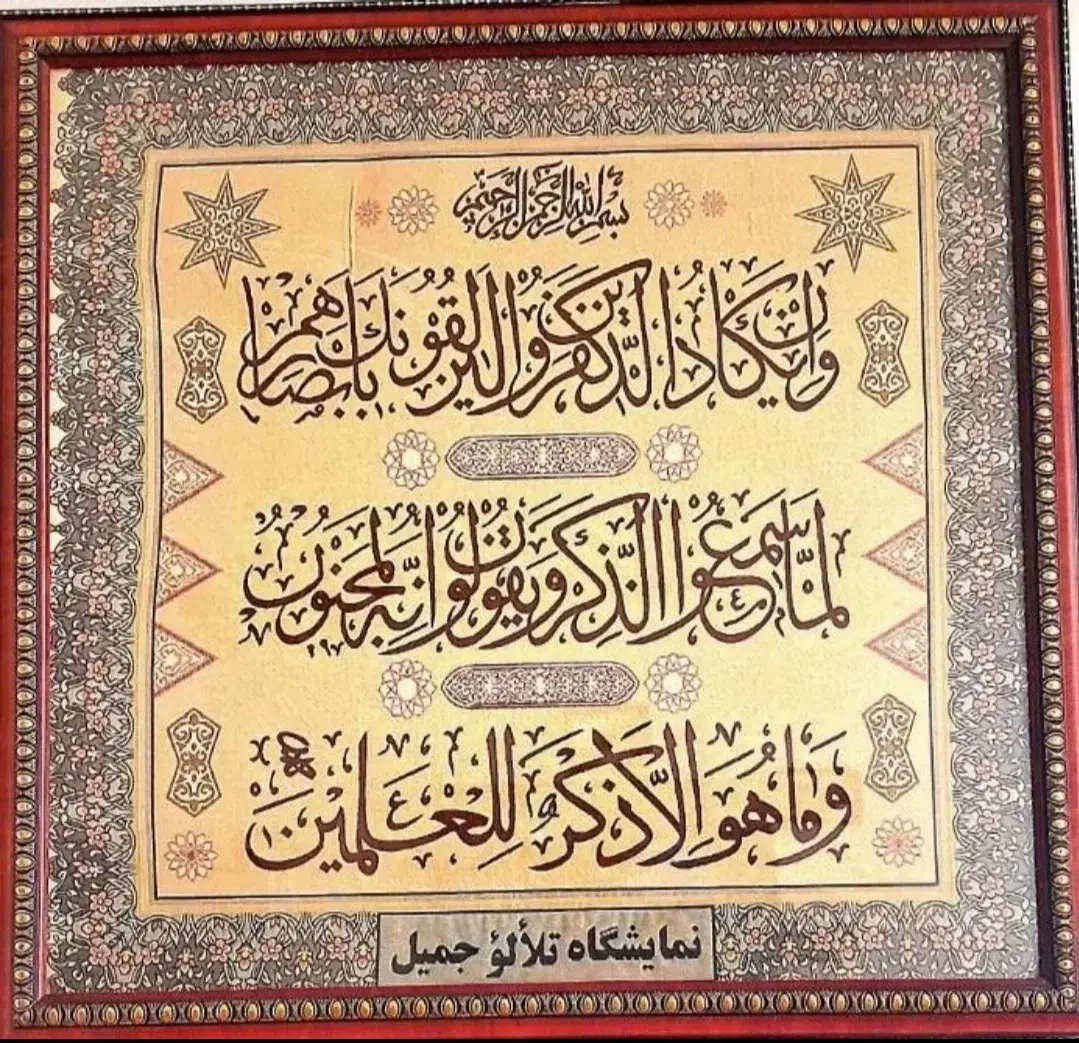 بسم الله الرحمن الرحيم
وَإِن يَكَادُ الَّذِينَ كَفَرُوا لَيُزْلِقُونَكَ بِأَبْصَارِهِمْ
لَمَّا سَمِعُوا الذِّكْرَ وَيَقُولُونَ إِنَّهُ لَمَجْنُونٌ
وَمَا هُوَ إِلَّا ذِكْرٌ لِلْعَٰلَمِينَ
نمایشگاه تلألؤ جمیل